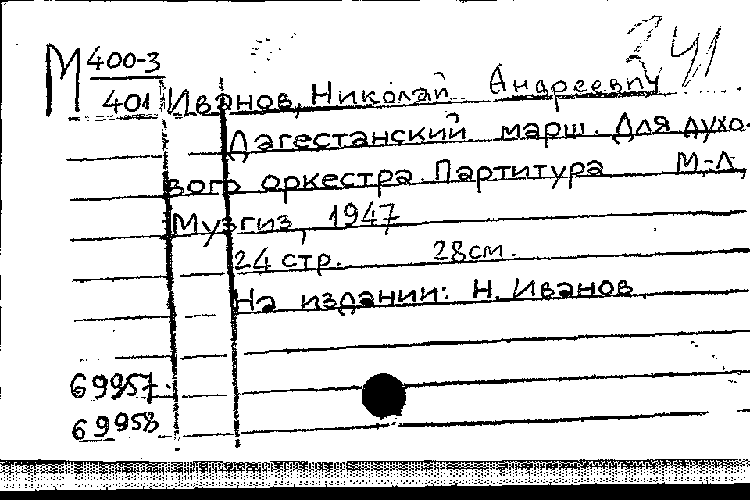 341
М 400-3
401 Иванов, Николай Андреевич
Дагестанский марш. Для духо-
вого оркестра. Партитура М.-Л.,
Музгиз, 1947
24 стр. 28 см.
На издании: Н. Иванов
69957
69958